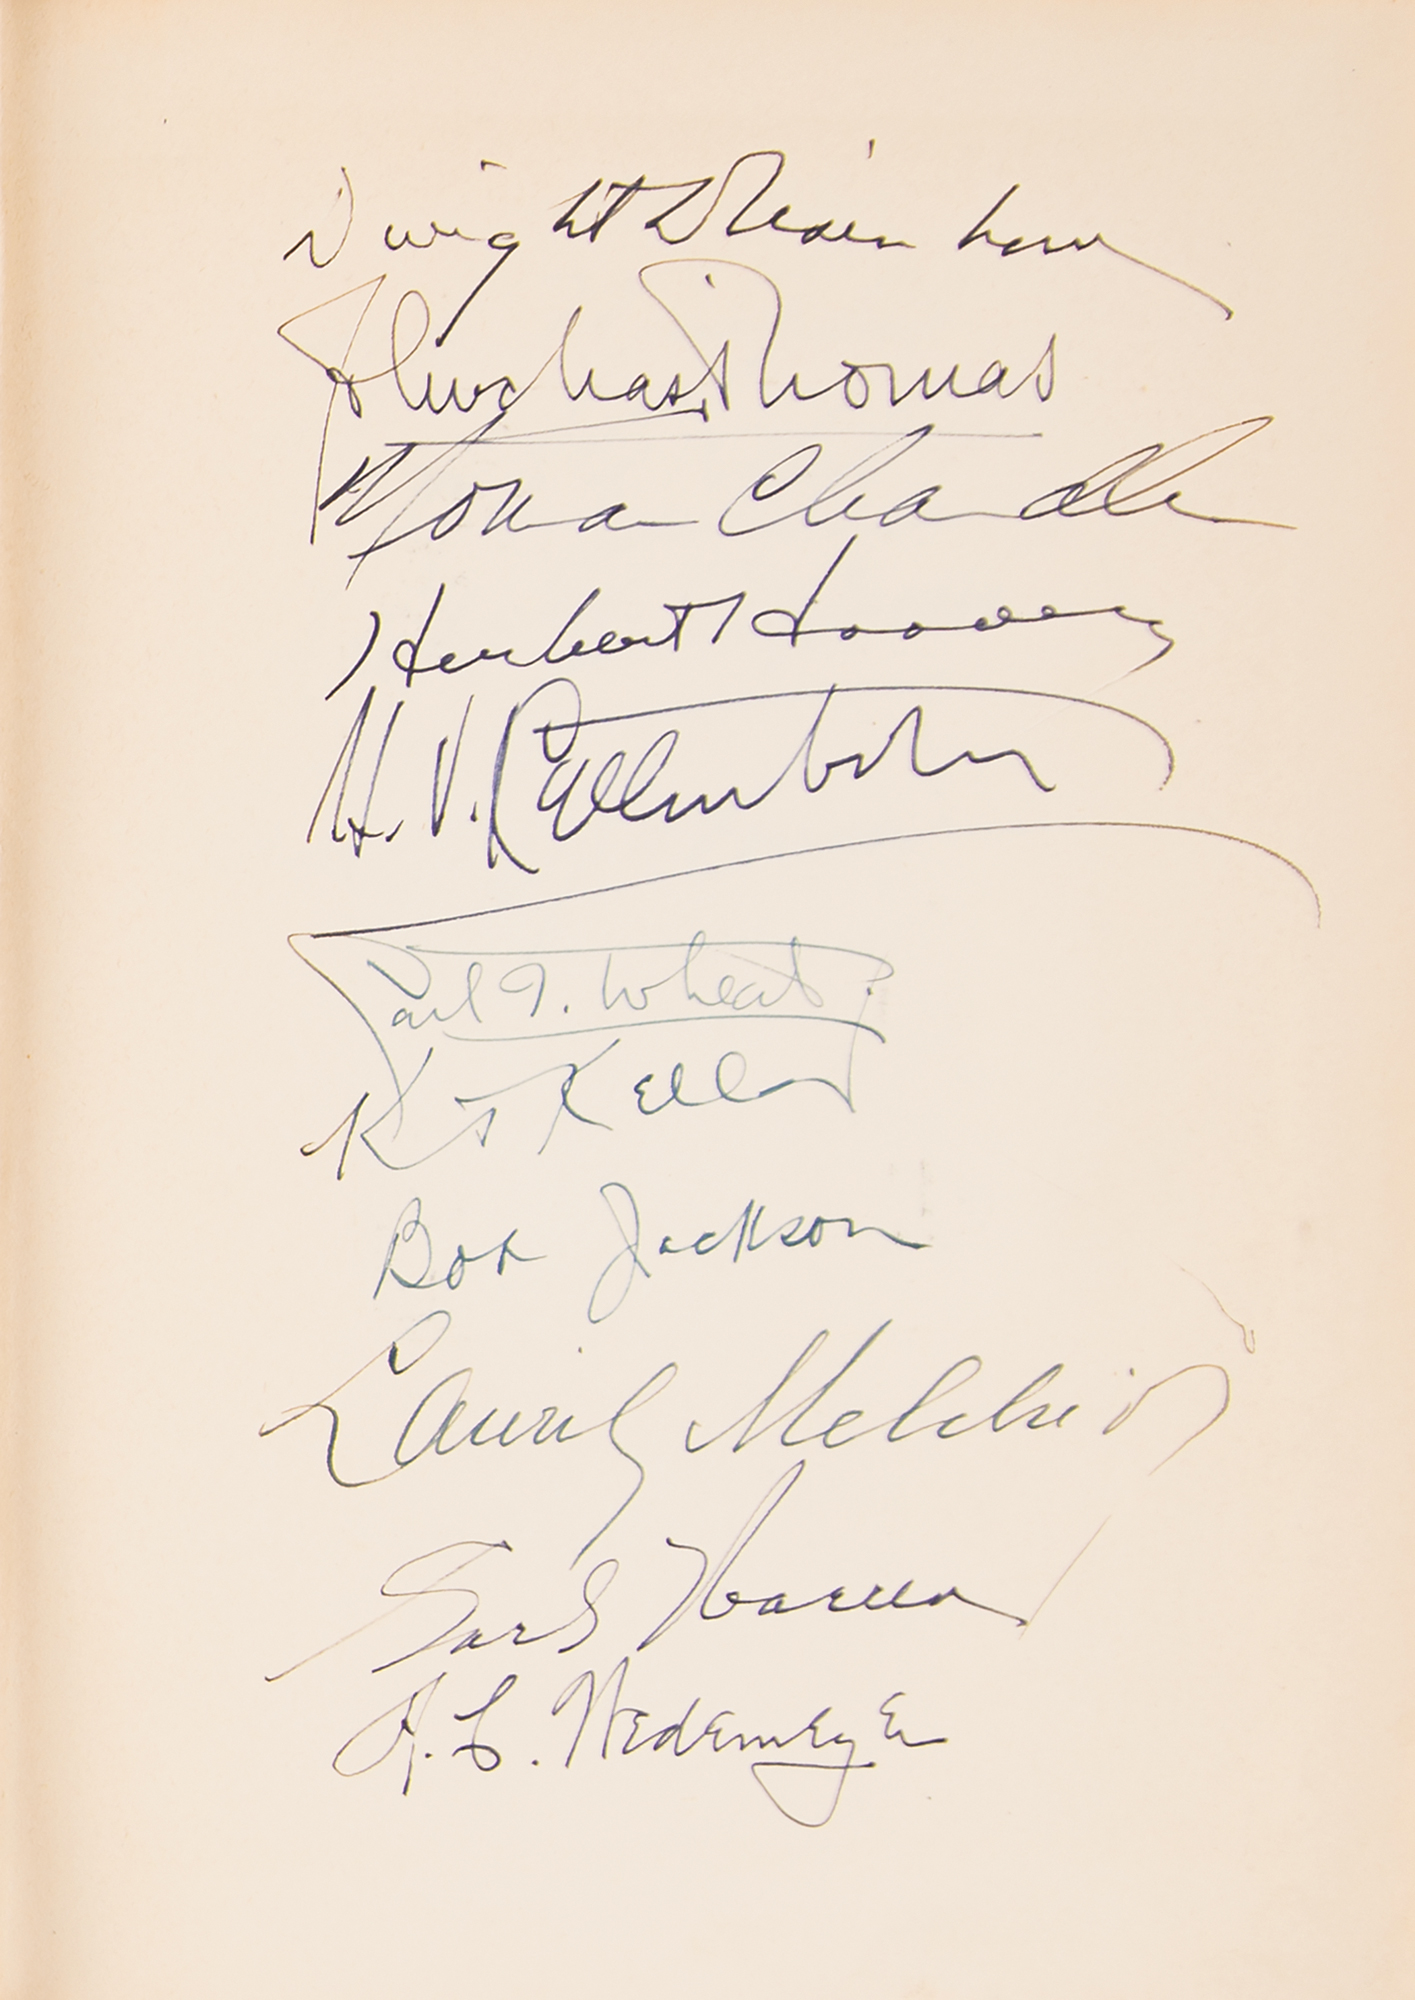 Dwight D Eisenhower
Thomas
Norman Chandler
Herbert Hoover
H. V. Kaltenborn
Carl I. Wheat
K T Keller
Bob Jackson
Lauritz Melchior
Earl Warren
A. C. Wedemeyer